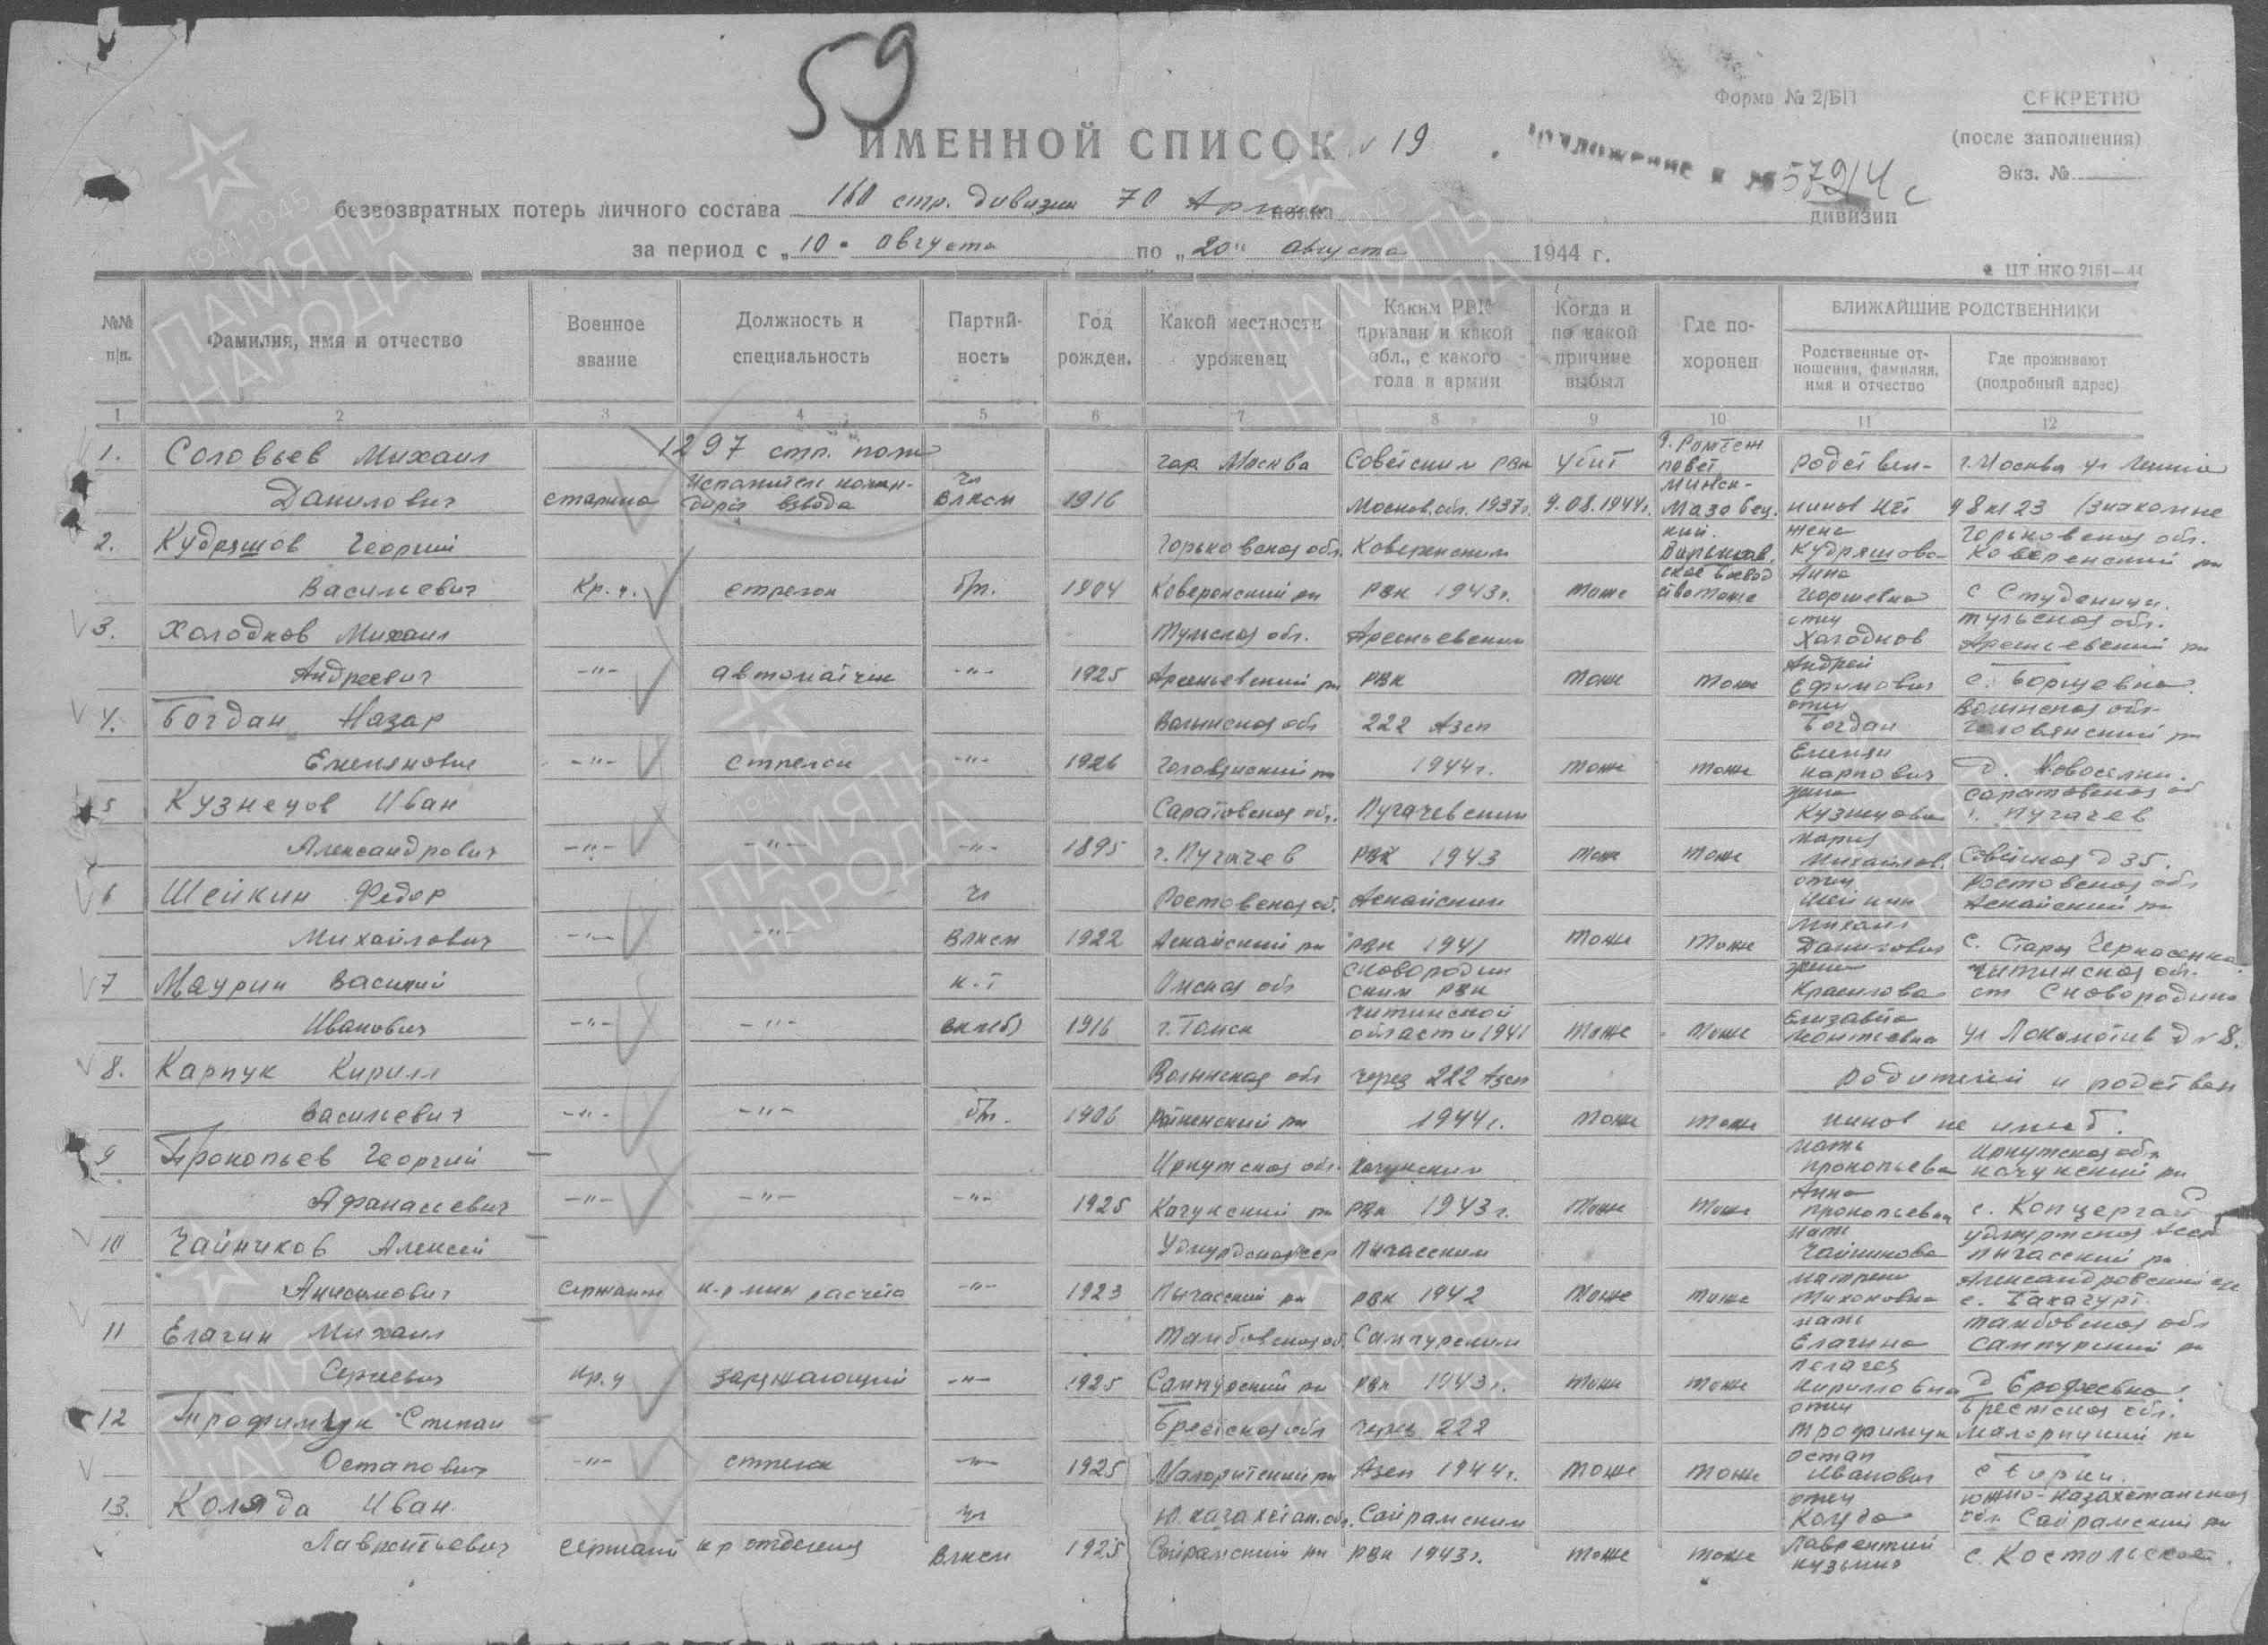 59
Форма № 2/БП
СЕКРЕТНО
ИМЕННОЙ СПИСОК № 19
Приложение к № 57914 с
(после заполнения)
Экз. №
безвозвратных потерь личного состава 160 стр. дивизии 70 Армии полка дивизии
за период с „10" августа по „20" августа 1944 г.
ЦТ НКО 9151—44
№№ п/п. Фамилия, имя и отчество Военное звание Должность и специальность Партийность Год рожден. Какой местности уроженец Каким РВК призван и какой обл., с какого года в армии Когда и по какой причине выбыл Где похоронен БЛИЖАЙШИЕ РОДСТВЕННИКИ
Родственные отношения, фамилия, имя и отчество Где проживают (подробный адрес)
1 2 3 4 5 6 7 8 9 10 11 12
1297 стр. полк
1. Соловьев Михаил гор Москва Советским РВК убит родствен- г. Москва ул
Данилович старшина командира взвода чл ВЛКСМ 1916 Москов. обл. 1937г. 9.08.1944г. Мазовец. ников нет д 8 кв 23 /знакомые
2. Кудряшов Георгий Горьковская обл. Коверенским жена Кудряшова Горьковская обл. Коверенский рн
Васильевич Кр.ц. стрелок б/п. 1904 Коверенский рн РВК 1943г. тоже тоже Анна Георгиевна с Студеници.
3. Холодков Михаил Тульская обл. Арсеньевским отец Холодков Тульская обл. Арсеньевский рн
Андреевич -"- автоматчик -"- 1925 Арсеньевский рн РВК тоже тоже Андрей Ефимович с. Борщевка.
4. Богдан Назар Волынская обл 222 Азсп отец Богдан Волынская обл.
Емельянович -"- стрелок -"- 1926 1944г. тоже тоже Емельян Карпович д. Новоселки.
5 Кузнецов Иван Саратовская обл. Пугачевским жена Кузнецова Саратовская об г. Пугачев
Александрович -"- -"- -"- 1895 г. Пугачев РВК 1943 тоже тоже Мария Михайлов. Советская д 35.
6 Шейкин Федор чл Ростовская об. Аксайским отец Шейкин Ростовская обл Аксайский рн
Михайлович -"- -"- ВЛКСМ 1922 Аксайский рн РВК 1941 тоже тоже Михаил Данилович с. Старая Черкасенка.
7 Маурин Василий к-т Омская обл Сковородинским РВК жена Красилова Читинская обл. ст Сковородино
Иванович -"- -"- вкп(б) 1916 г. Томск Читинской области 1941 тоже тоже Елизавета ул Локомотив д № 8.
8. Карпук Кирилл Волынская обл через 222 Азсп родителей и родствен
Васильевич -"- -"- б/п. 1906 рн 1944г. тоже тоже ников не имеет.
9 Прокопьев Георгий Иркутская обл. Качугским мать Прокопьева Иркутская обл Качугский рн
Афанасьевич -"- -"- -"- 1925 Качугский рн РВК 1943г. тоже тоже Анна Прокопьевна с.
10 Чайников Алексей Удмурдская сср Пычасским мать Чайникова Удмуртская Асср Пычасский рн
Анисимович сержант к-р мин расчета -"- 1923 Пычасский рн РВК 1942 тоже тоже Матрена Александровский с/с с. Бакагурт.
11 Елагин Михаил Тамбовская об. Сампурским мать Елагина Тамбовская обл Сампурский рн
Сергеевич Кр.ц заряжающий -"- 1925 Сампурский рн РВК 1943г. тоже тоже Пелагея Кирилловна д Ерофеевка
12 Трофимук Степан Брестская обл через 222 отец Трофимук Брестская обл. Малоритский рн
Остапович -"- стрелок -"- 1925 Малоритский рн Азсп 1944г. тоже тоже Остап Иванович с
13. Коляда Иван чл Ю. казахстан. обл. Сайрамским отец Коляда южно-казахстанская обл. Сайрамский рн
Лаврентьевич сержант к-р отделения ВЛКСМ 1925 Сайрамский рн РВК 1943г. тоже тоже Лаврентий Кузьмич с.
ПАМЯТЬ НАРОДА
1941-1945